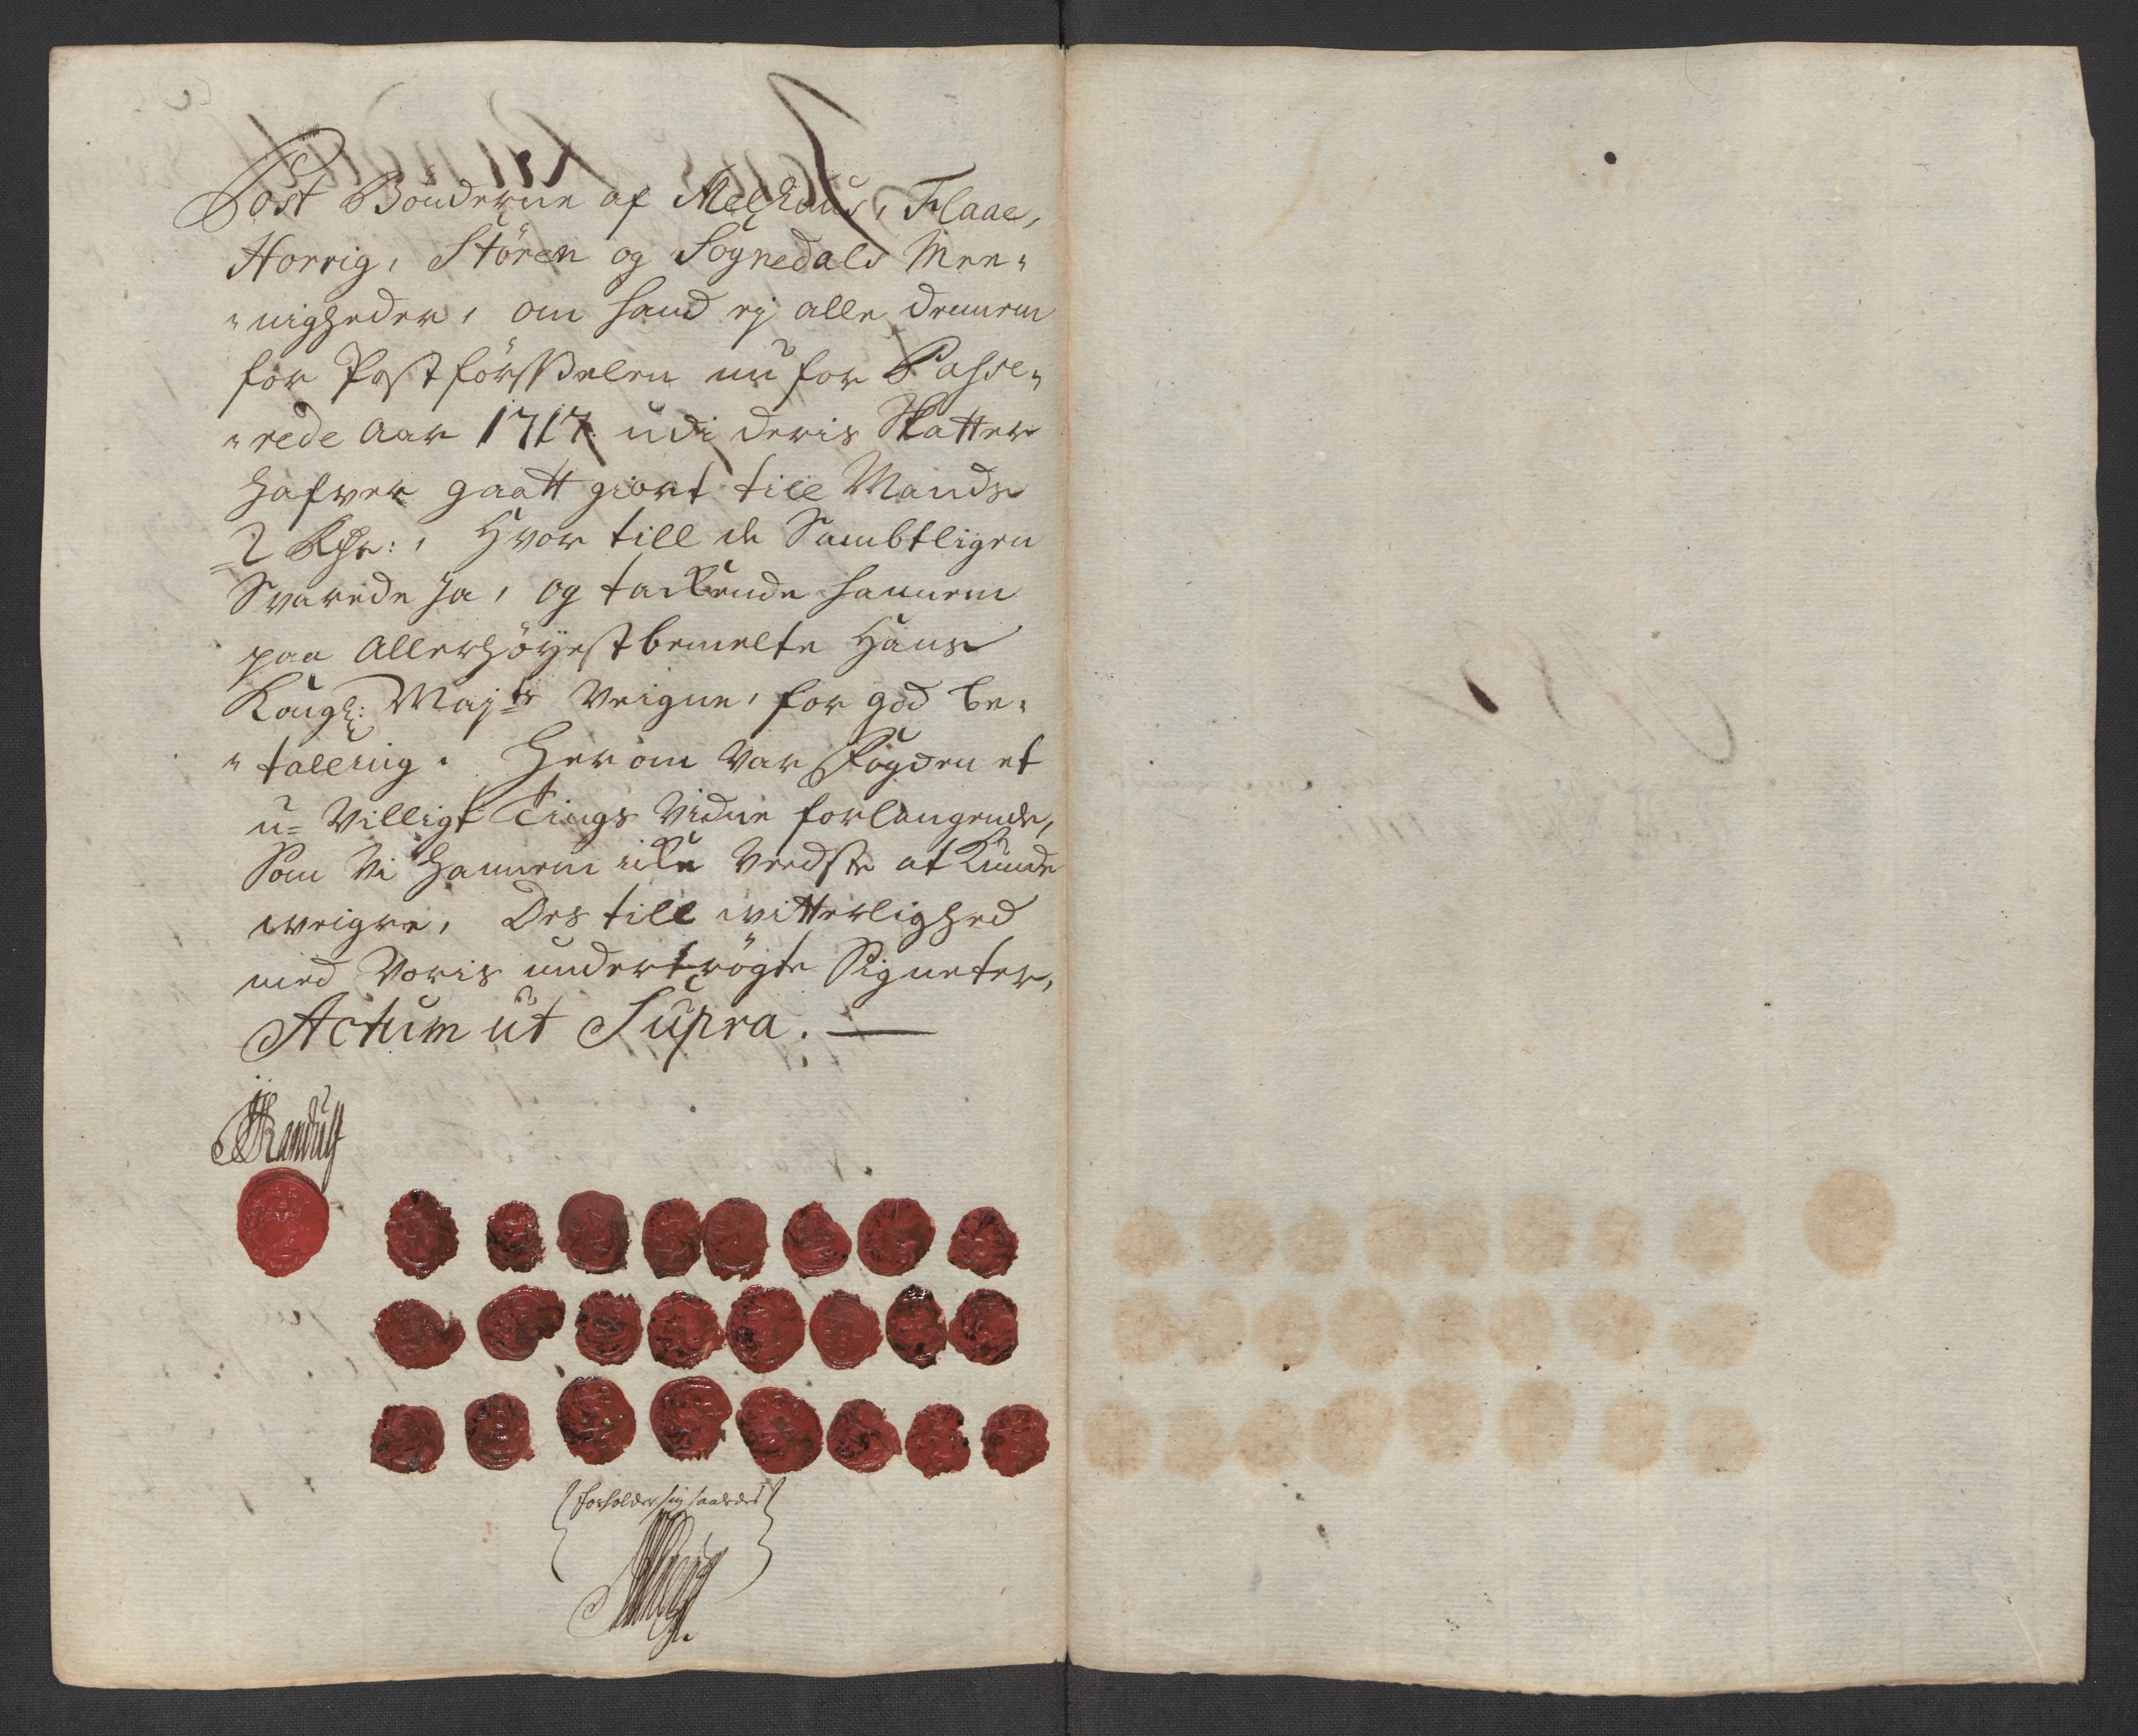 Post Bönderne af Melhuus, Flaae,
Horrig, Stören og Sognedals Mee-
-nigheder, om hand ej alle dennem
for Postförsselen nu for Passe-
-rede Aar 1717. udi deris Skatter
hafver gaatt giort till Mands
2 Rdr:, Hvor till de Sambtligen
Svarede Ja, og tackende hannem
paa Allerhöyestbemelte Hans
Kongl: Majts Veigne, for god be-
-talling. Herom var Fogden et
u-Villigt Tings Vidne forlangende,
Som Vi hannem icke Veedste at kunde
weigre, Des till witterlighed
med Voris undertrögte Signeter,
Actum ut Supra.
forholder sig saaledes